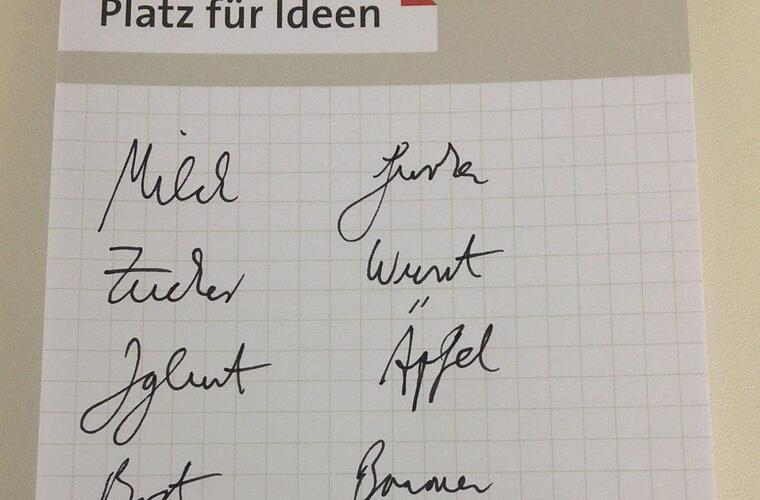 Platz für Ideen
Milch
Zucker
Joghurt
Brot
Gurken
Wurst
Äpfel
Bananen